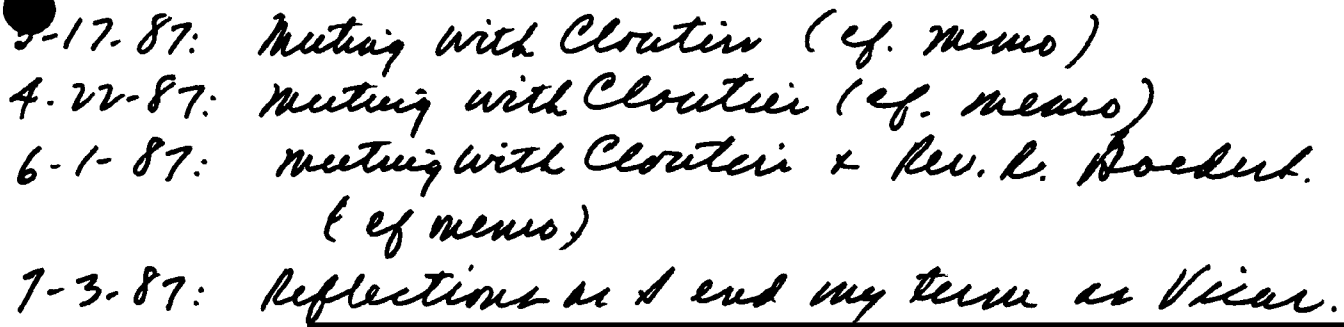 3-17-87: Meeting with Cloutier (cf. memo)
4-22-87: Meeting with Cloutier (cf. memo)
6-1-87: Meeting with Cloutier + Rev. R. Goedert.
(cf memo)
7-3-87: Reflections as I end my term as Vicar.